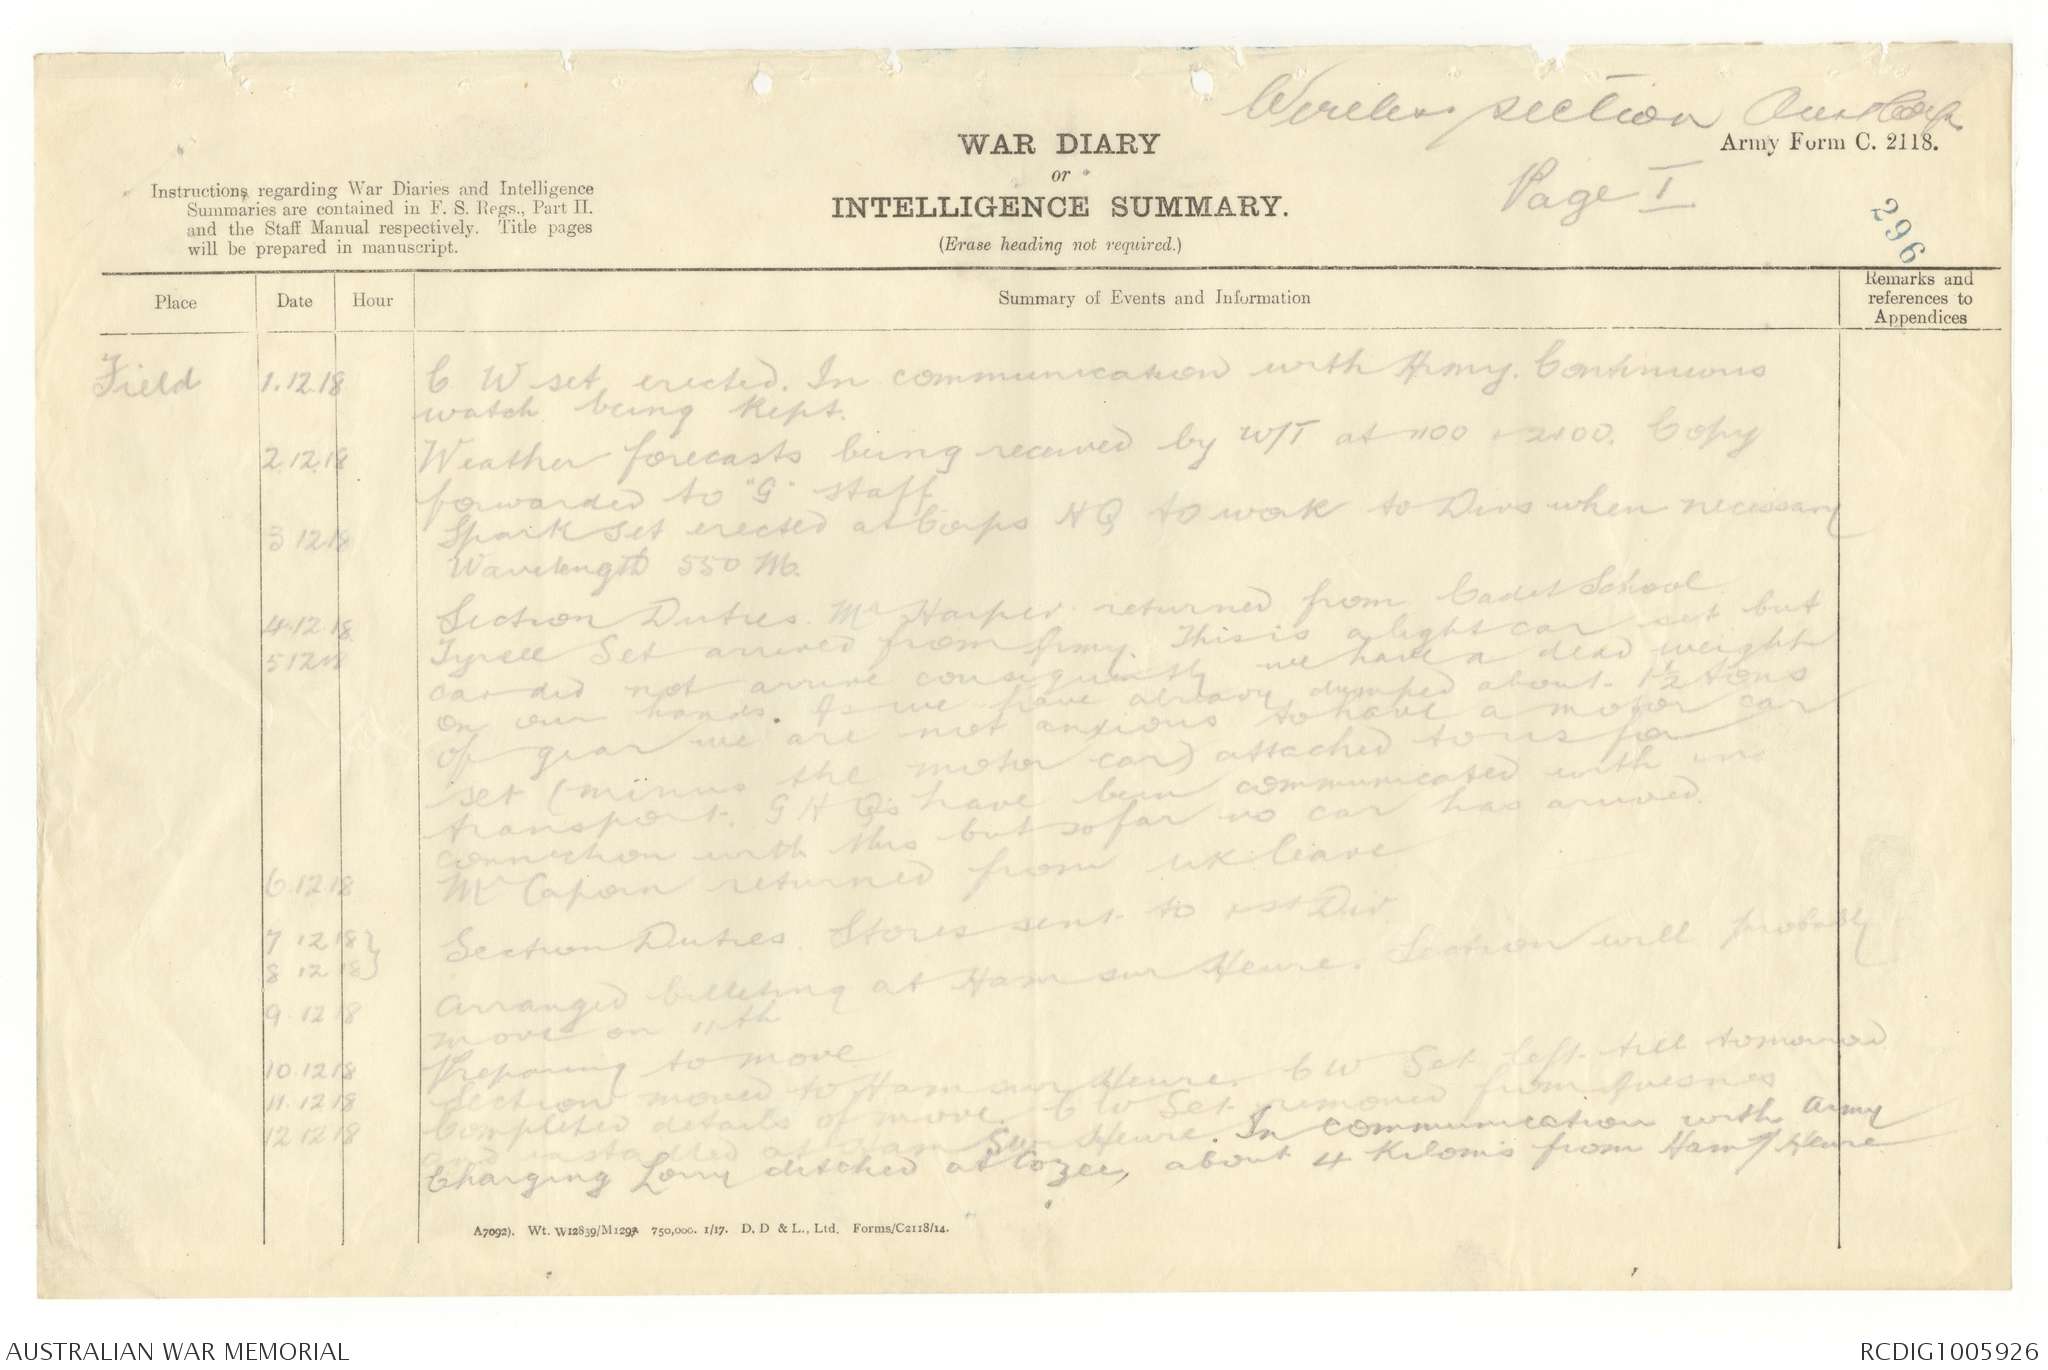 Wireless section Aust Corps
WAR DIARY
Army Form C. 2118.
or
INTELLIGENCE SUMMARY.
(Erase heading not required.)
Page I
296
Instructions regarding War Diaries and Intelligence
Summaries are contained in F. S. Regs., Part II.
and the Staff Manual respectively. Title pages
will be prepared in manuscript.
Place Date Hour Summary of Events and Information Remarks and references to Appendices
Field 1.12.18 C W set erected. In communication with Army. Continuous
watch being kept.
2.12.18 Weather forecasts being received by W/T at 1100 + 2100. Copy
forwarded to "G" staff
3 12.18 Spark set erected at Corps HQ to work to Divs when necessary
Wavelength 550 M.
4.12.18 Section Duties. Mr Harper returned from Cadet School
5 12 18 Tyrell Set arrived from Army. This is a light car set but
car did not arrive consequently we have a dead weight
on our hands. As we have already dumped about 1½ tons
of gear we are not anxious to have a motor car
set (minus the motor car) attached to us for
transport. G H Q's have been communicated with in
connection with this but so far no car has arrived.
6.12.18 Mr Caporn returned from UK leave
7 12 18 }
8 12 18 } Section Duties. Stores sent to 1st Div.
9.12 18 Arranged billeting at Ham sur Heure. Section will probably
move on 11th
10.12.18 Preparing to move
11.12 18 Section moved to Ham sur Heure. C W Set left till tomorrow
12 12 18 Completed details of move. C W Set removed from Avesnes
and installed at Ham Sur Heure. In communication with Army
Charging Lorry ditched at Cozee, about 4 Kiloms from Ham s/ Heure
A7092). Wt. W12839/M1297 750,000. 1/17. D. D & L., Ltd. Forms/C2118/14.
AUSTRALIAN WAR MEMORIAL
RCDIG1005926